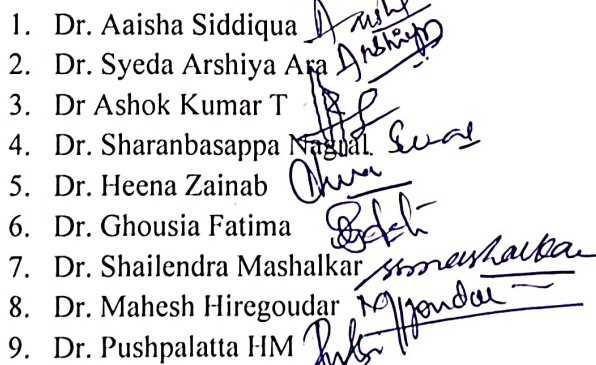 1. Dr. Aaisha Siddiqua
2. Dr. Syeda Arshiya Ara Arshiya
3. Dr Ashok Kumar T
4. Dr. Sharanbasappa Nagral.
5. Dr. Heena Zainab
6. Dr. Ghousia Fatima
7. Dr. Shailendra Mashalkar smmashalkar
8. Dr. Mahesh Hiregoudar
9. Dr. Pushpalatta HM